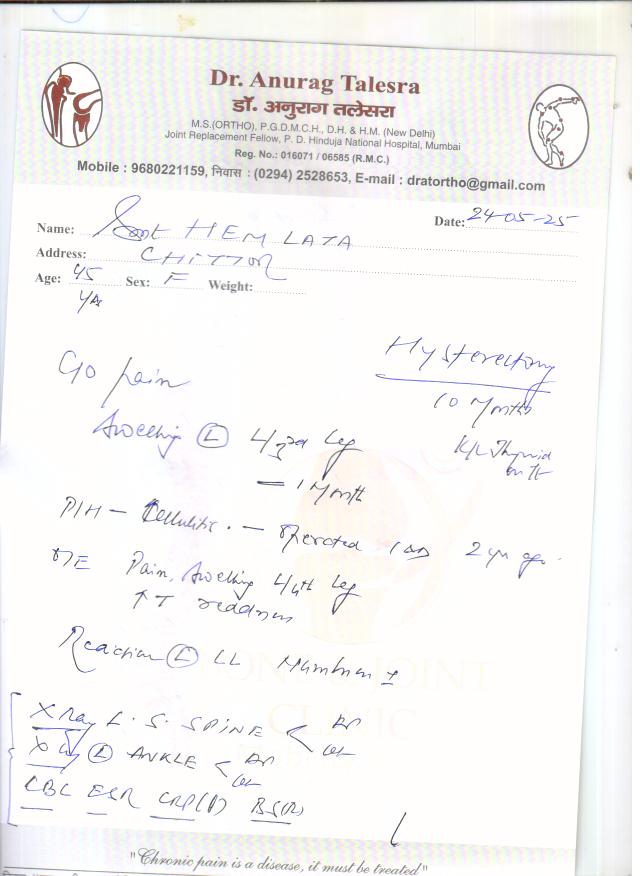 Dr. Anurag Talesra
डॉ. अनुराग तलेसरा
M.S.(ORTHO), P.G.D.M.C.H., D.H. & H.M. (New Delhi)
Joint Replacement Fellow, P. D. Hinduja National Hospital, Mumbai
Reg. No.: 016071 / 06585 (R.M.C.)
Mobile : 9680221159, निवास : (0294) 2528653, E-mail : dratortho@gmail.com
Date: 24-05-25
Name: Smt HEM LATA
Address: CHITTOR
Age: 45 Sex: F Weight:
Hysterectomy
C/o pain
10 Months
Swelling (L) L/3rd Leg
K/c Thyroid
= 1 Month
P/H - Cellulitis - Operated 2 yr ago
O/E Pain, Swelling Leg
↑ T redness
(L) LL
X Ray L. S. SPINE < AP
Lat
X Ray (L) ANKLE < AP
Lat
CBC ESR CRP BS(R)
"Chronic pain is a disease, it must be treated"